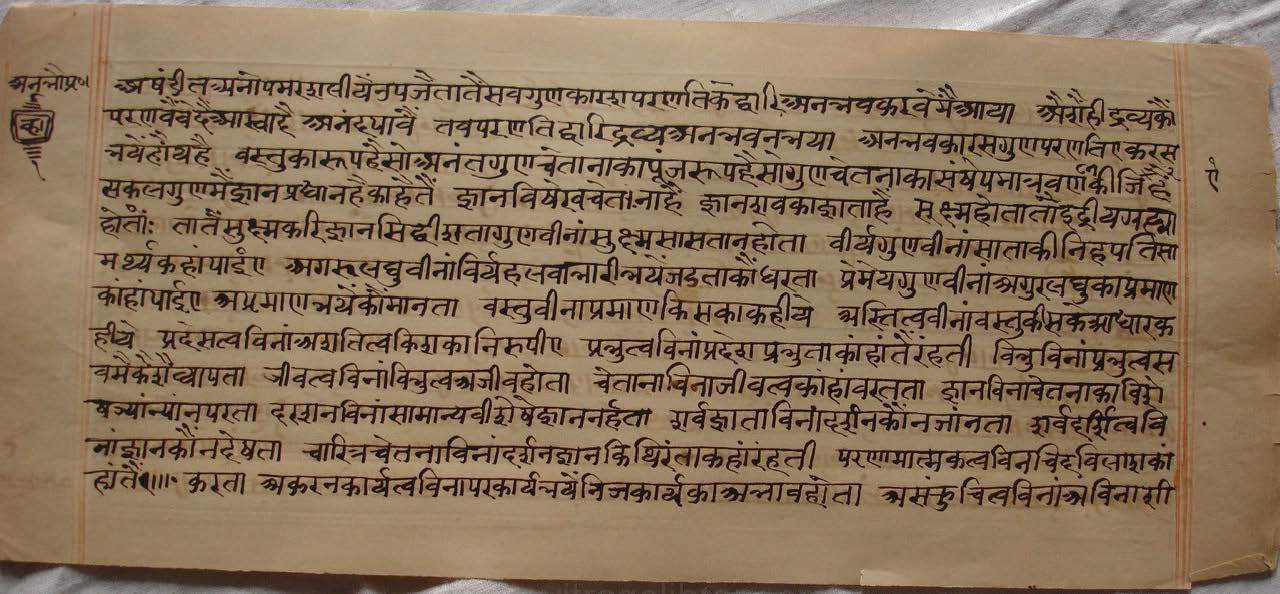 अनुभौप्र०
व्हा
अषंडीत अनोपमरसवीर्यैनपजै तातै सव गुणकारसपरणतिकेद्वारिअनन्तवकरवेमैआया अैसैही द्रव्यकौं
परणवैवेदैआस्वादै अनंदपावैं तवपरणतिद्वारिद्रव्यअनन्तवनभया अनन्तवकारसगुणपरणतिएकरस
भयेंहोयहै वस्तुकारूपहैसोअनंतगुणचेतानाकापुंजरूपहैसोगुणचेतनाकासंषेपमात्रवर्णकीजिहैं
सकलगुणमैंज्ञानप्रधानहैकाहेतै ज्ञानविषेषचेतानाहै ज्ञानसवकाज्ञाताहै सूक्ष्महोतातोइंद्रीयग्रह्या
होता: तातैंसुक्ष्मकरिज्ञानसिद्धी सतागुणवीनांसुक्ष्मसासतानहोता वीर्यगुणवीनांसाताकीनिहपतिसा
मर्थ्यकहांपाईए अगरूलघुवीनांविर्यहलवाभारीभयेंजडताकौंधरता प्रेमेयगुणवीनांअगुरलघुकाप्रमाण
कांहांपाईए अप्रमाणभयेंकौमानता वस्तुवीनाप्रमाणकिसकाकहीये अस्तित्ववीनांवस्तुकीसकआधारक
हीये प्रदेसत्वविनांअसतित्वकिसकानिरुपीए प्रभुत्वविनांप्रदेसप्रभुताकांहांतैरंहती विभुविनांप्रभुत्वस
वमैकैसैव्यापता जीवत्वविनांविभुत्वअजीवहोता चेतानाविनाजीवत्वकांहांवरतता ज्ञानविनाचेतनाकाविशे
षज्यांन्यांनपरता दरशनविनांसामान्यवीशेषेज्ञाननर्हता शर्वज्ञाताविनांदर्शनकौंनजांनता शर्वदर्शित्ववि
नांज्ञानकौंनदेषता चारित्रचेतनाविनांदर्शनज्ञानकिथिंरताकहांरंहती परणामात्मकत्वविनचिदविलाशकां
हांतैं करता अकरनकार्यत्वविनापरकार्यभयेंनिजकार्यकाअभावहोता असंकुचित्वविनांअविनाशी